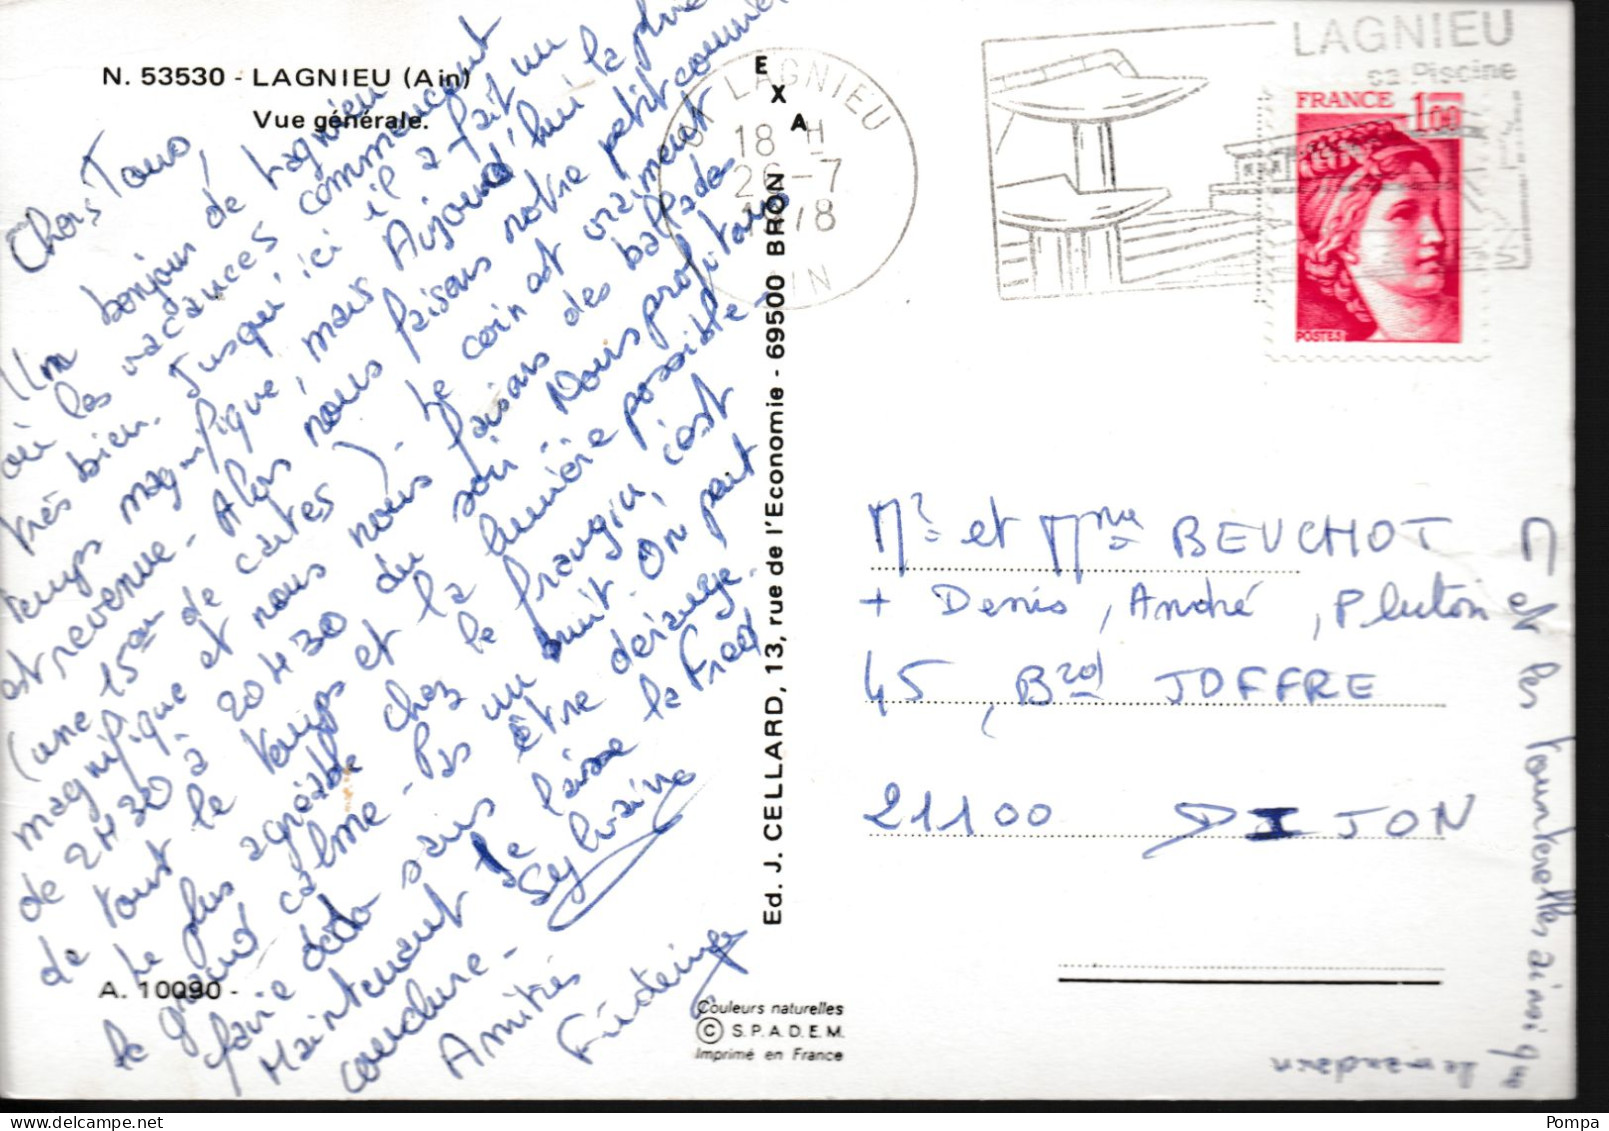 N. 53530 - LAGNIEU (Ain)
Vue générale.
Chers Tous,
Un bonjour de Lagnieu
où les vacances commencent
très bien. Jusqu'ici il a fait un
temps magnifique, mais Aujourd'hui la pluie
est revenue - Alors nous faisons notre petit courrier
(une 15ne de cartes) - Le coin est vraiment
magnifique et nous nous faisons des ballades
de 2H30 à 20H30 du soir - Nous profitons
de tout le temps et la lumière possible -
Le plus agréable chez le frangin, c'est
le grand calme - Pas un bruit. On peut
faire dodo sans être dérangé.
Maintenant je laisse la Fred
conclure -
Sylvaine
Amitiés
A. 10090 -
E
X
A
Ed. J. CELLARD, 13, rue de l'Economie - 69500 BRON
Couleurs naturelles
© S.P.A.D.E.M.
Imprimé en France
LAGNIEU
18 H
26-7
1978
AIN
LAGNIEU
sa Piscine
FRANCE 1,00
POSTES
Mr et Mme BEUCHOT
+ Denis, André, Pluton
45, Brd JOFFRE
21100 DIJON
et les tourterelles ainsi que
le mandarin
Pompa